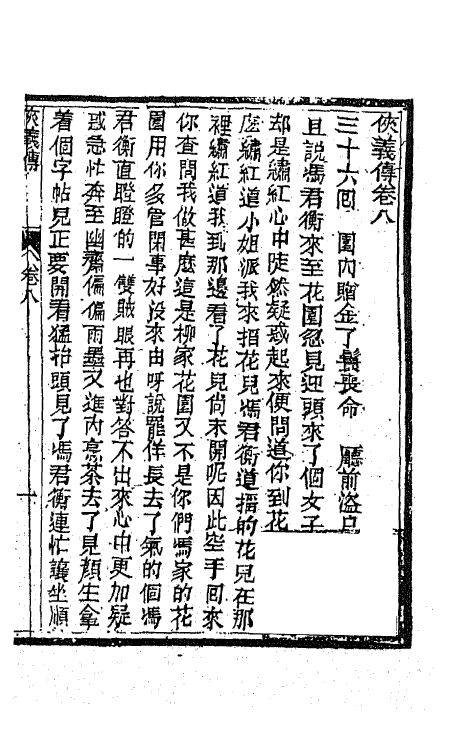 俠義傳卷八
三十六回　園內贈金丫鬟喪命　廳前盜尸
且說馮君衡來至花園忽見迎頭來了個女子
却是繡紅心中陡然疑惑起來便問道你到花
園繡紅道小姐派我來掐花兒馮君衡道掐的花兒在那
裡繡紅道我到那邊看了花兒尚未開呢因此空手回來
你查問我做甚麼這是柳家花園又不是你們馮家的花
園用你多管閑事好沒來由呀說罷佯長去了氣的個馮
君衡直瞪瞪的一雙賊眼再也對答不出來心中更加疑
惑急忙奔至幽齋偏偏雨墨又進內烹茶去了見顏生拿
着個字帖兒正要開看猛抬頭見了馮君衡連忙讓坐順
俠義傳
卷八